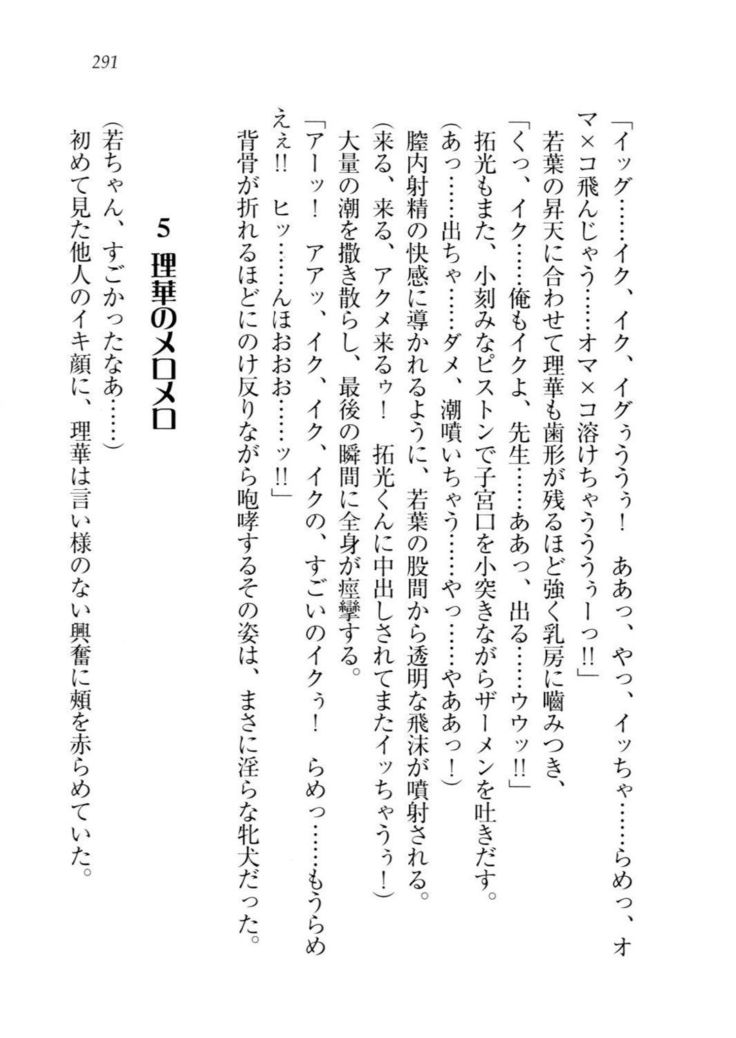 291
「イッグ……イク、イク、イグぅううぅ！　ああっ、やっ、イッちゃ……らめっ、オ
マ×コ飛んじゃう……オマ×コ溶けちゃうううぅーっ!!」
若葉の昇天に合わせて理華も歯形が残るほど強く乳房に嚙みつき、
「くっ、イク……俺もイクよ、先生……ああっ、出る……ウウッ!!」
拓光もまた、小刻みなピストンで子宮口を小突きながらザーメンを吐きだす。
(あっ……出ちゃ……ダメ、潮噴いちゃう……やっ……やああっ！)
膣内射精の快感に導かれるように、若葉の股間から透明な飛沫が噴射される。
(来る、来る、アクメ来るゥ！　拓光くんに中出しされてまたイッちゃうぅ！)
大量の潮を撒き散らし、最後の瞬間に全身が痙攣する。
「アーッ！　アアッ、イク、イク、イクの、すごいのイクぅ！　らめっ……もうらめ
えぇ!!　ヒッ……んほおおお……ッ!!」
背骨が折れるほどにのけ反りながら咆哮するその姿は、まさに淫らな牝犬だった。
5 理華のメロメロ
(若ちゃん、すごかったなあ……)
初めて見た他人のイキ顔に、理華は言い様のない興奮に頰を赤らめていた。